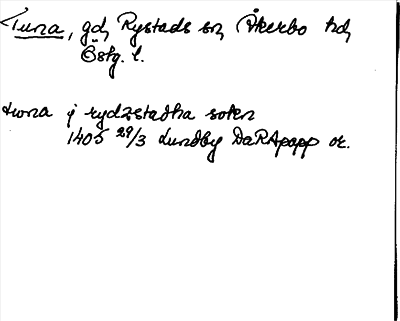 Tuna, gd, Rystads sn, Åkerbo hd,
Östg. l.
twna j rydzstadha sokn
1405 29/3 Lundby DaRApapp or.